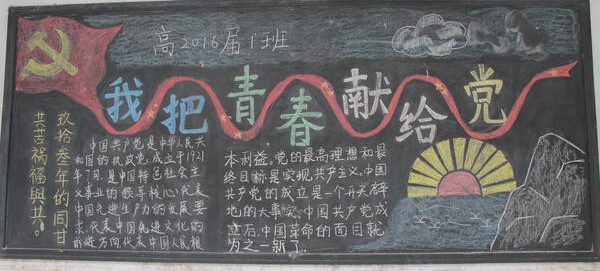 高2016届1班
我把青春献给党
玖拾叁年的同甘
共苦祸福與共。
中国共产党是中华人民共
和国的执政党,成立于1921
年7月,是中国特色社会主
义事业的领导核心,代表
中国先进生产力的发展要
求,代表中国先进文化的
前进方向,代表中国人民根
本利益,党的最高理想和最
终目标是实现共产主义,中国
共产党的成立是一个开天辟
地的大事,中国共产党成
立后,中国革命的面目就
为之一新了。